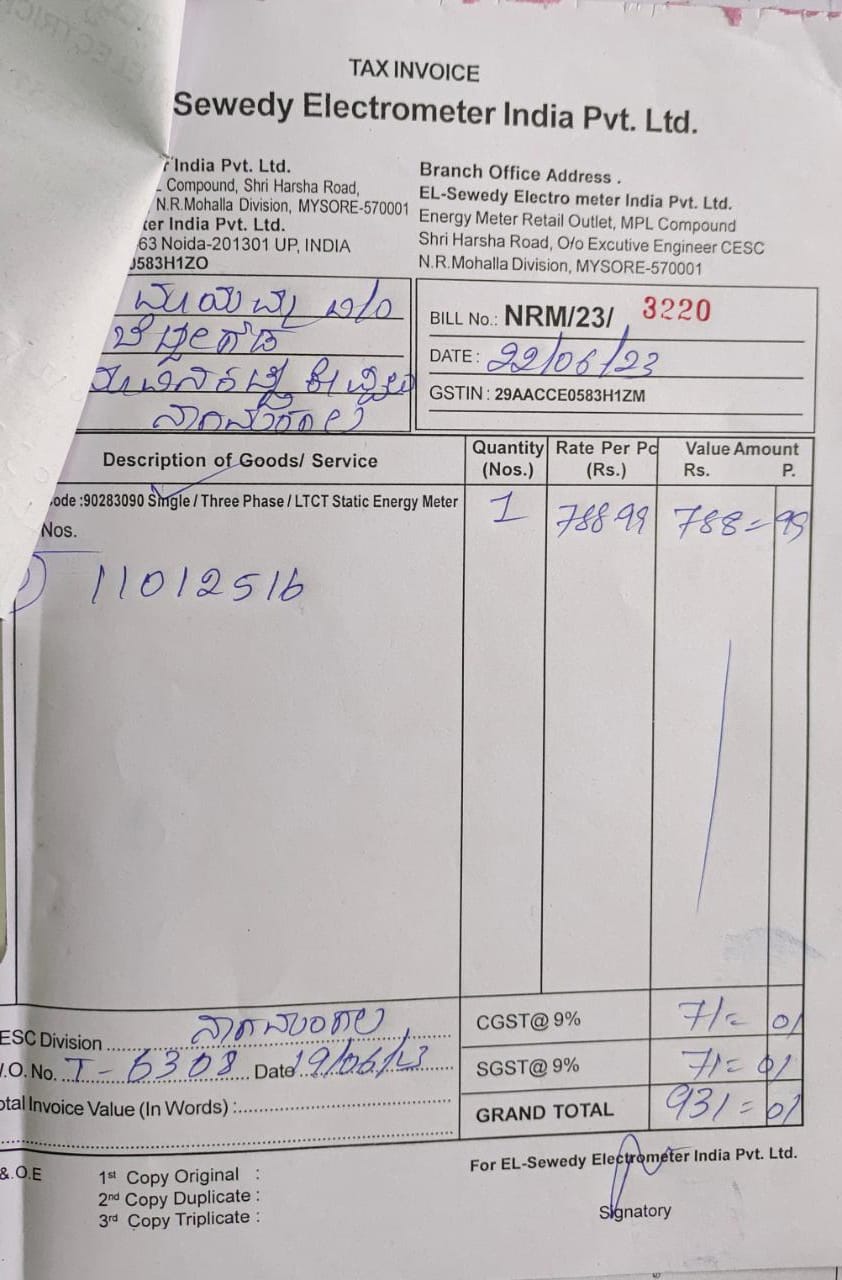 TAX INVOICE
Sewedy Electrometer India Pvt. Ltd.
India Pvt. Ltd.
Compound, Shri Harsha Road,
N.R.Mohalla Division, MYSORE-570001
ter India Pvt. Ltd.
63 Noida-201301 UP, INDIA
0583H1ZO
Branch Office Address .
EL-Sewedy Electro meter India Pvt. Ltd.
Energy Meter Retail Outlet, MPL Compound
Shri Harsha Road, O/o Excutive Engineer CESC
N.R.Mohalla Division, MYSORE-570001
ನಾಗಮಂಗಲ
BILL No.: NRM/23/ 3220
DATE: 22/06/23
GSTIN : 29AACCE0583H1ZM
Description of Goods/ Service Quantity (Nos.) Rate Per Pc (Rs.) Value Amount Rs. P.
ode :90283090 Single / Three Phase / LTCT Static Energy Meter 1 788 99 788= 99
Nos.
11012516
ESC Division ನಾಗಮಂಗಲ
CGST@ 9% 71= 01
.O. No. T - 6308 Date 19/06/23
SGST@ 9% 71= 01
otal Invoice Value (In Words) :
GRAND TOTAL 931= 01
&.O.E
1st Copy Original :
2nd Copy Duplicate :
3rd Copy Triplicate :
For EL-Sewedy Electrometer India Pvt. Ltd.
Signatory